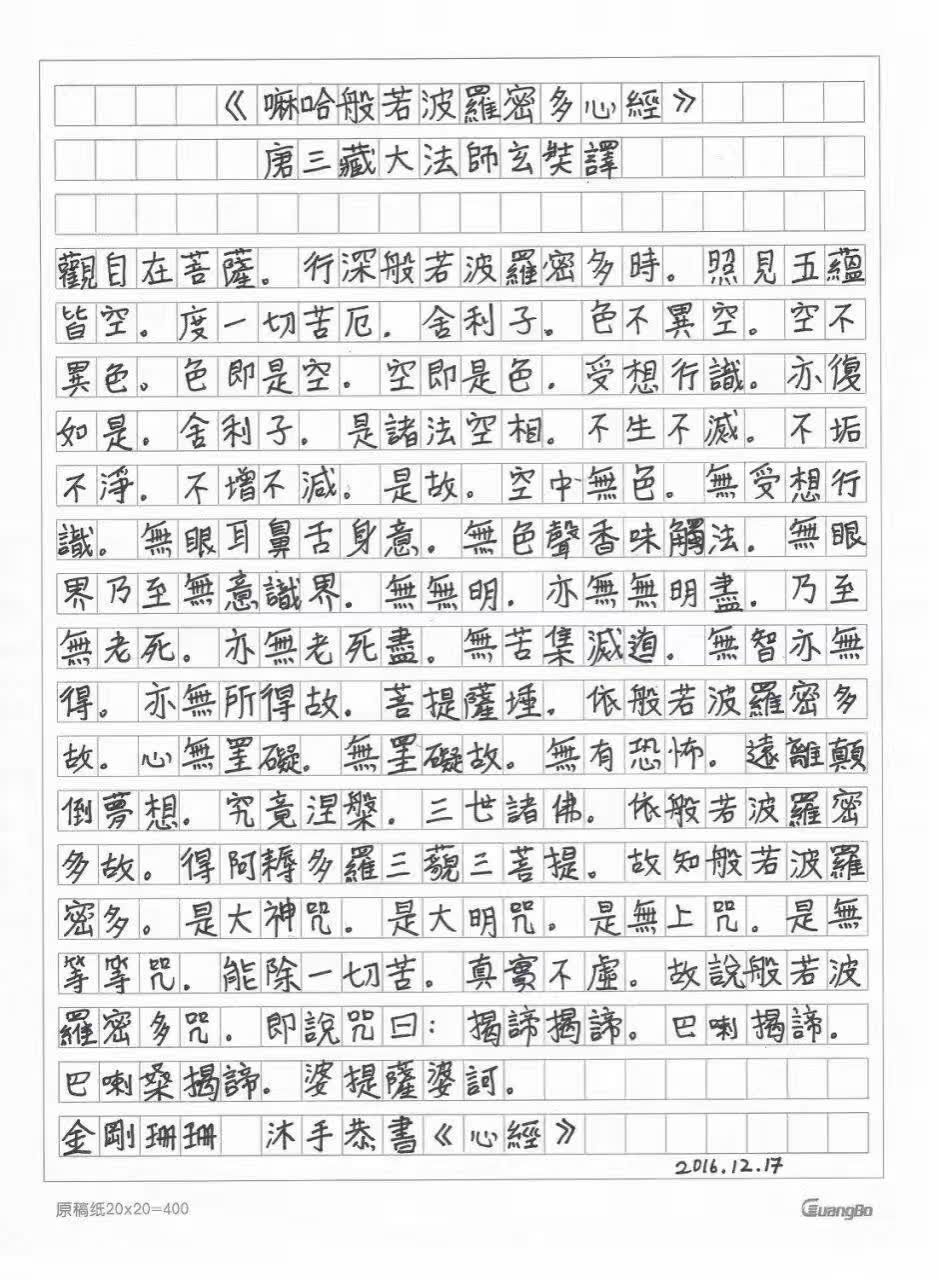 《嘛哈般若波羅密多心經》
唐三藏大法師玄奘譯
觀自在菩薩。行深般若波羅密多時。照見五蘊
皆空。度一切苦厄。舍利子。色不異空。空不
異色。色即是空。空即是色。受想行識。亦復
如是。舍利子。是諸法空相。不生不滅。不垢
不淨。不增不減。是故。空中無色。無受想行
識。無眼耳鼻舌身意。無色聲香味觸法。無眼
界乃至無意識界。無無明。亦無無明盡。乃至
無老死。亦無老死盡。無苦集滅道。無智亦無
得。亦無所得故。菩提薩埵。依般若波羅密多
故。心無罣礙。無罣礙故。無有恐怖。遠離顛
倒夢想。究竟涅槃。三世諸佛。依般若波羅密
多故。得阿耨多羅三藐三菩提。故知般若波羅
密多。是大神咒。是大明咒。是無上咒。是無
等等咒。能除一切苦。真實不虛。故說般若波
羅密多咒。即說咒曰：揭諦揭諦。巴喇揭諦。
巴喇桑揭諦。婆提薩婆訶。
金剛珊珊 沐手恭書《心經》
2016.12.17
原稿纸20x20=400 GuangBo